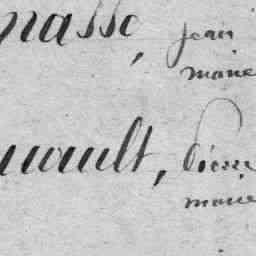 nasse, jean
marie
uault, pierre
marie